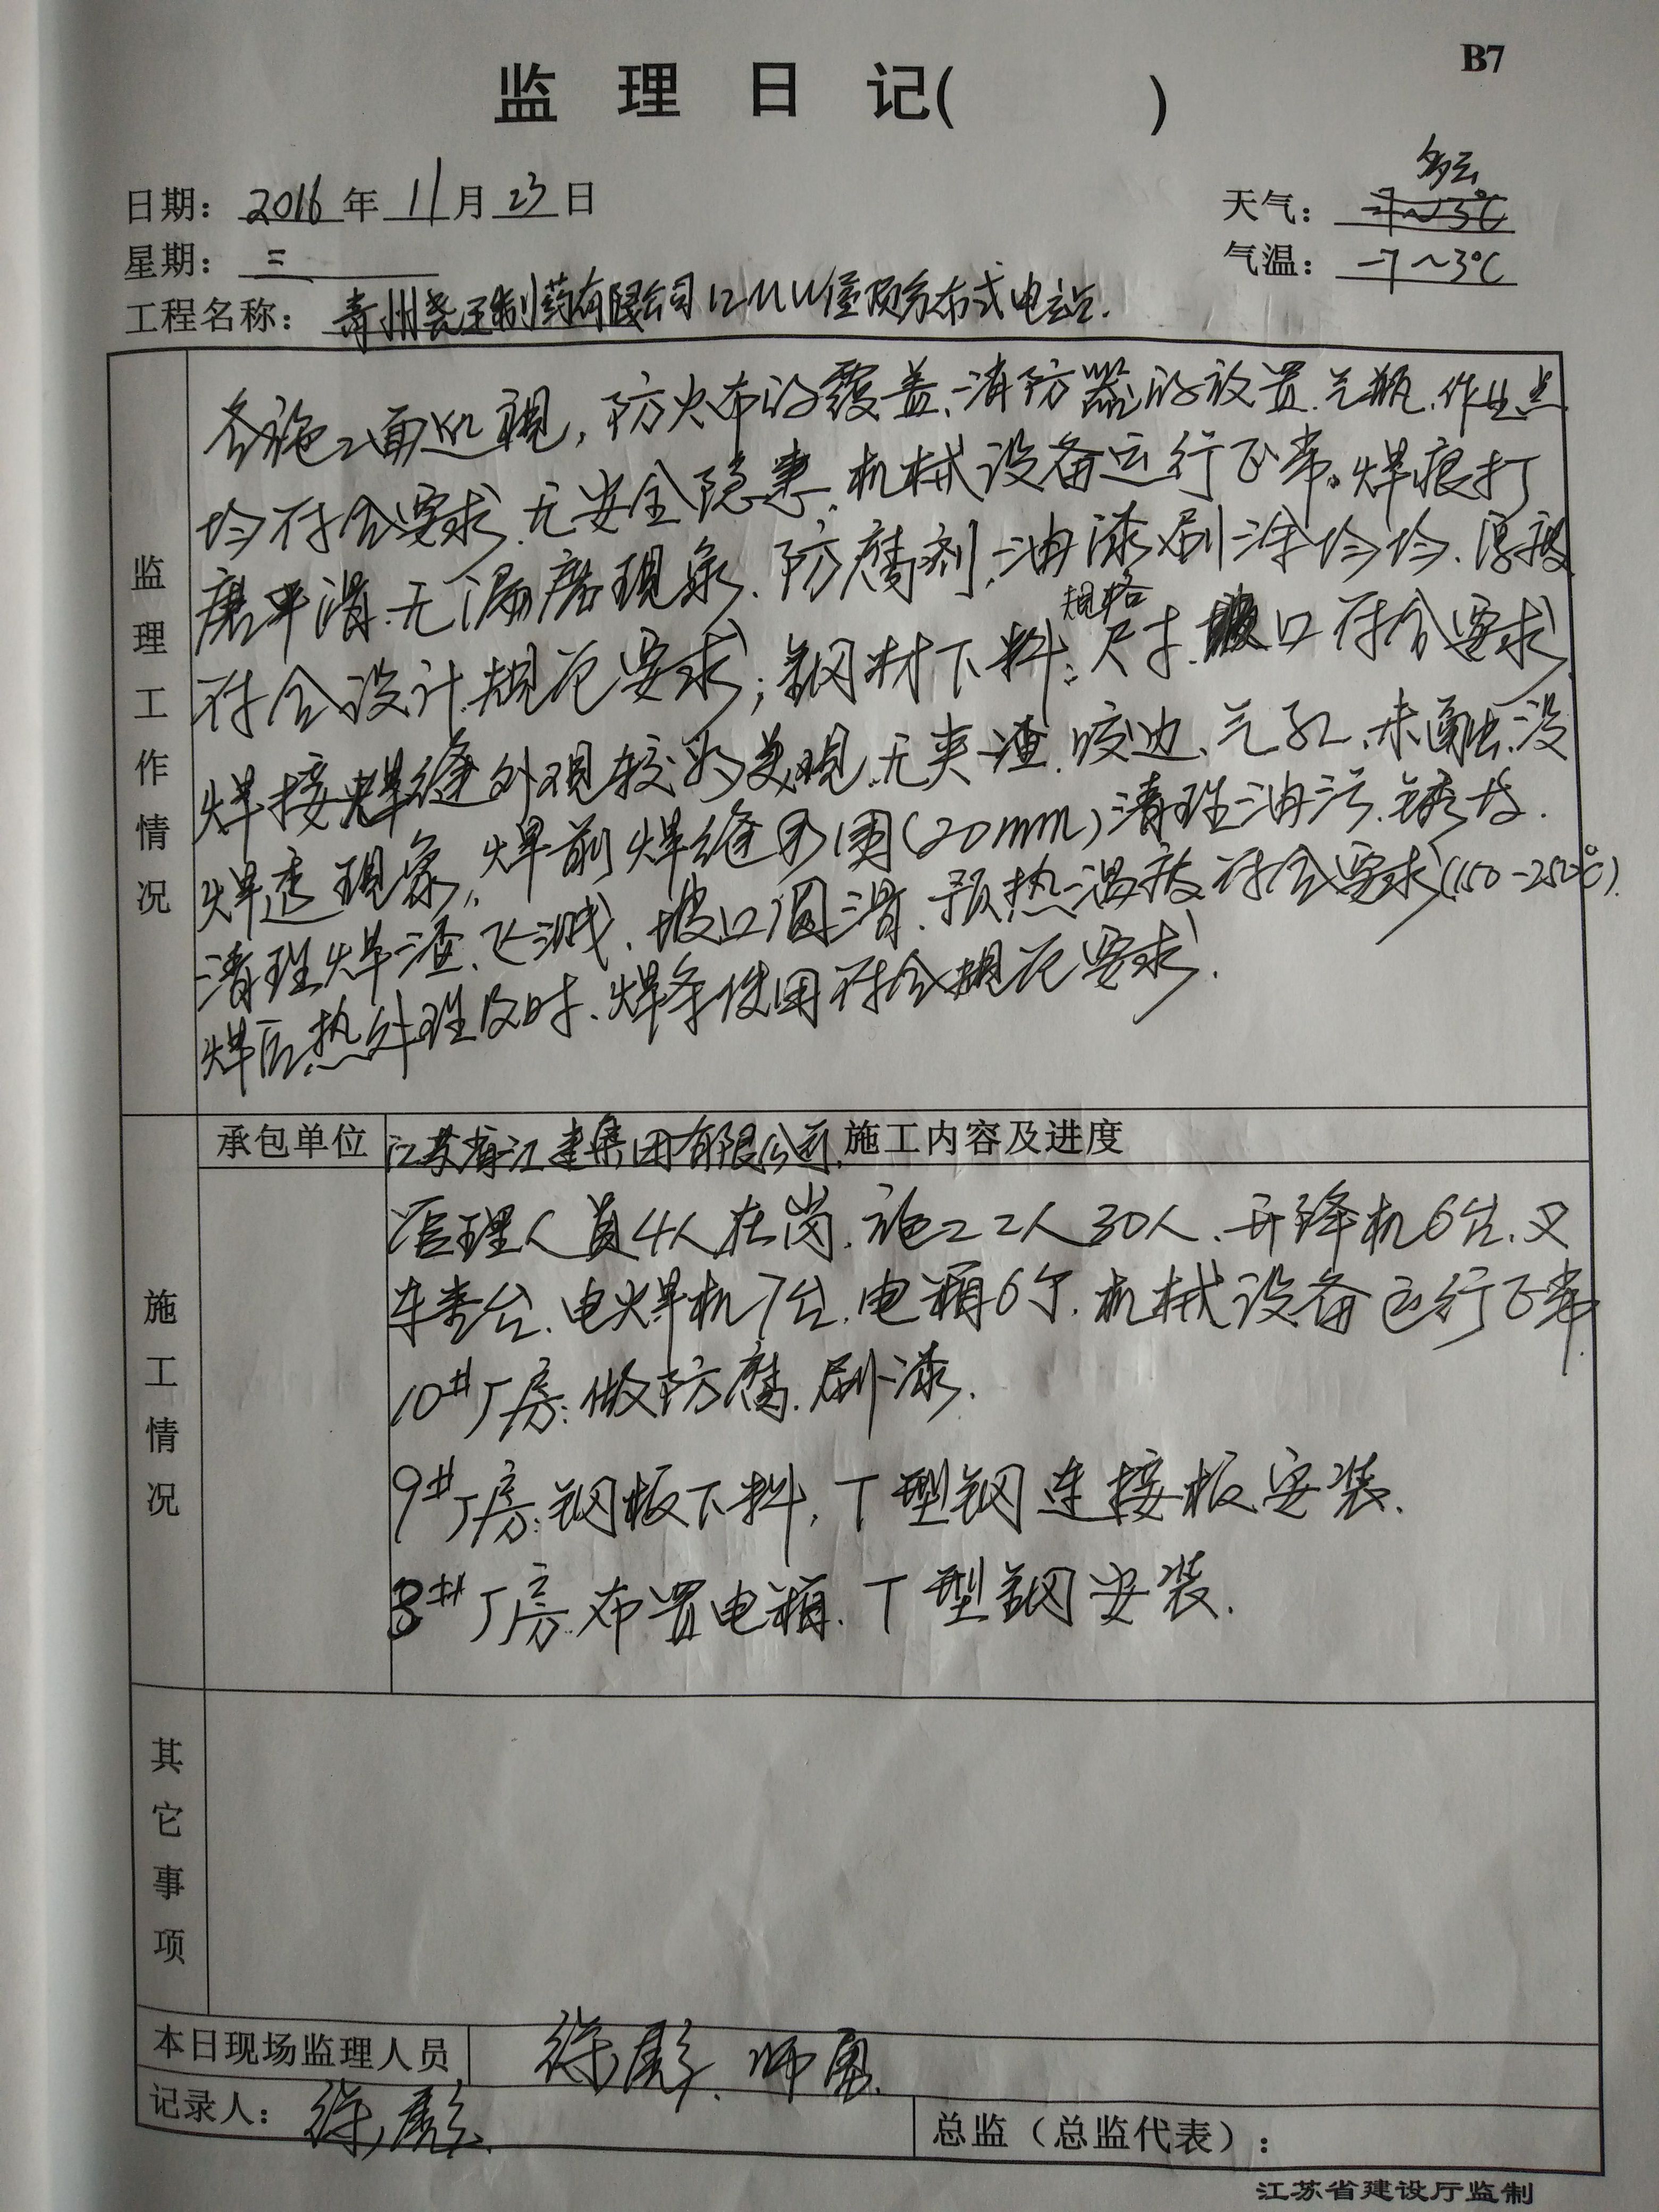 B7
监理日记( )
日期：2016年11月23日
天气：多云
星期：三
气温：-7～3℃
工程名称：青州尧王制药有限公司12MW屋顶分布式电站.
监理工作情况
各施工面巡视，防火布的覆盖、消防器的放置、气瓶、作业点
均符合要求、无安全隐患、机械设备运行正常。焊痕打
磨平滑、无漏磨现象、防腐剂、油漆刷涂均匀、厚度
符合设计规范要求；钢材下料：规格尺寸、坡口符合要求
焊接焊缝外观较为美观、无夹渣、咬边、气孔、未融、没
焊透现象，焊前焊缝周围(20mm)清理油污、锈皮.
清理焊渣、飞溅、坡口圆滑、预热温度符合要求(150-250℃).
焊后热处理及时、焊条使用符合规范要求.
施工情况
承包单位 江苏省江建集团有限公司 施工内容及进度
管理人员4人在岗、施工工人30人、升降机6台、叉
车叁台、电焊机7台、电箱6个、机械设备运行正常
10#厂房：做防腐、刷漆.
9#厂房：钢板下料，T型钢连接板安装.
8#厂房：布置电箱、T型钢安装.
其它事项
本日现场监理人员 徐彪、师勇
记录人：徐彪
总监（总监代表）：
江苏省建设厅监制